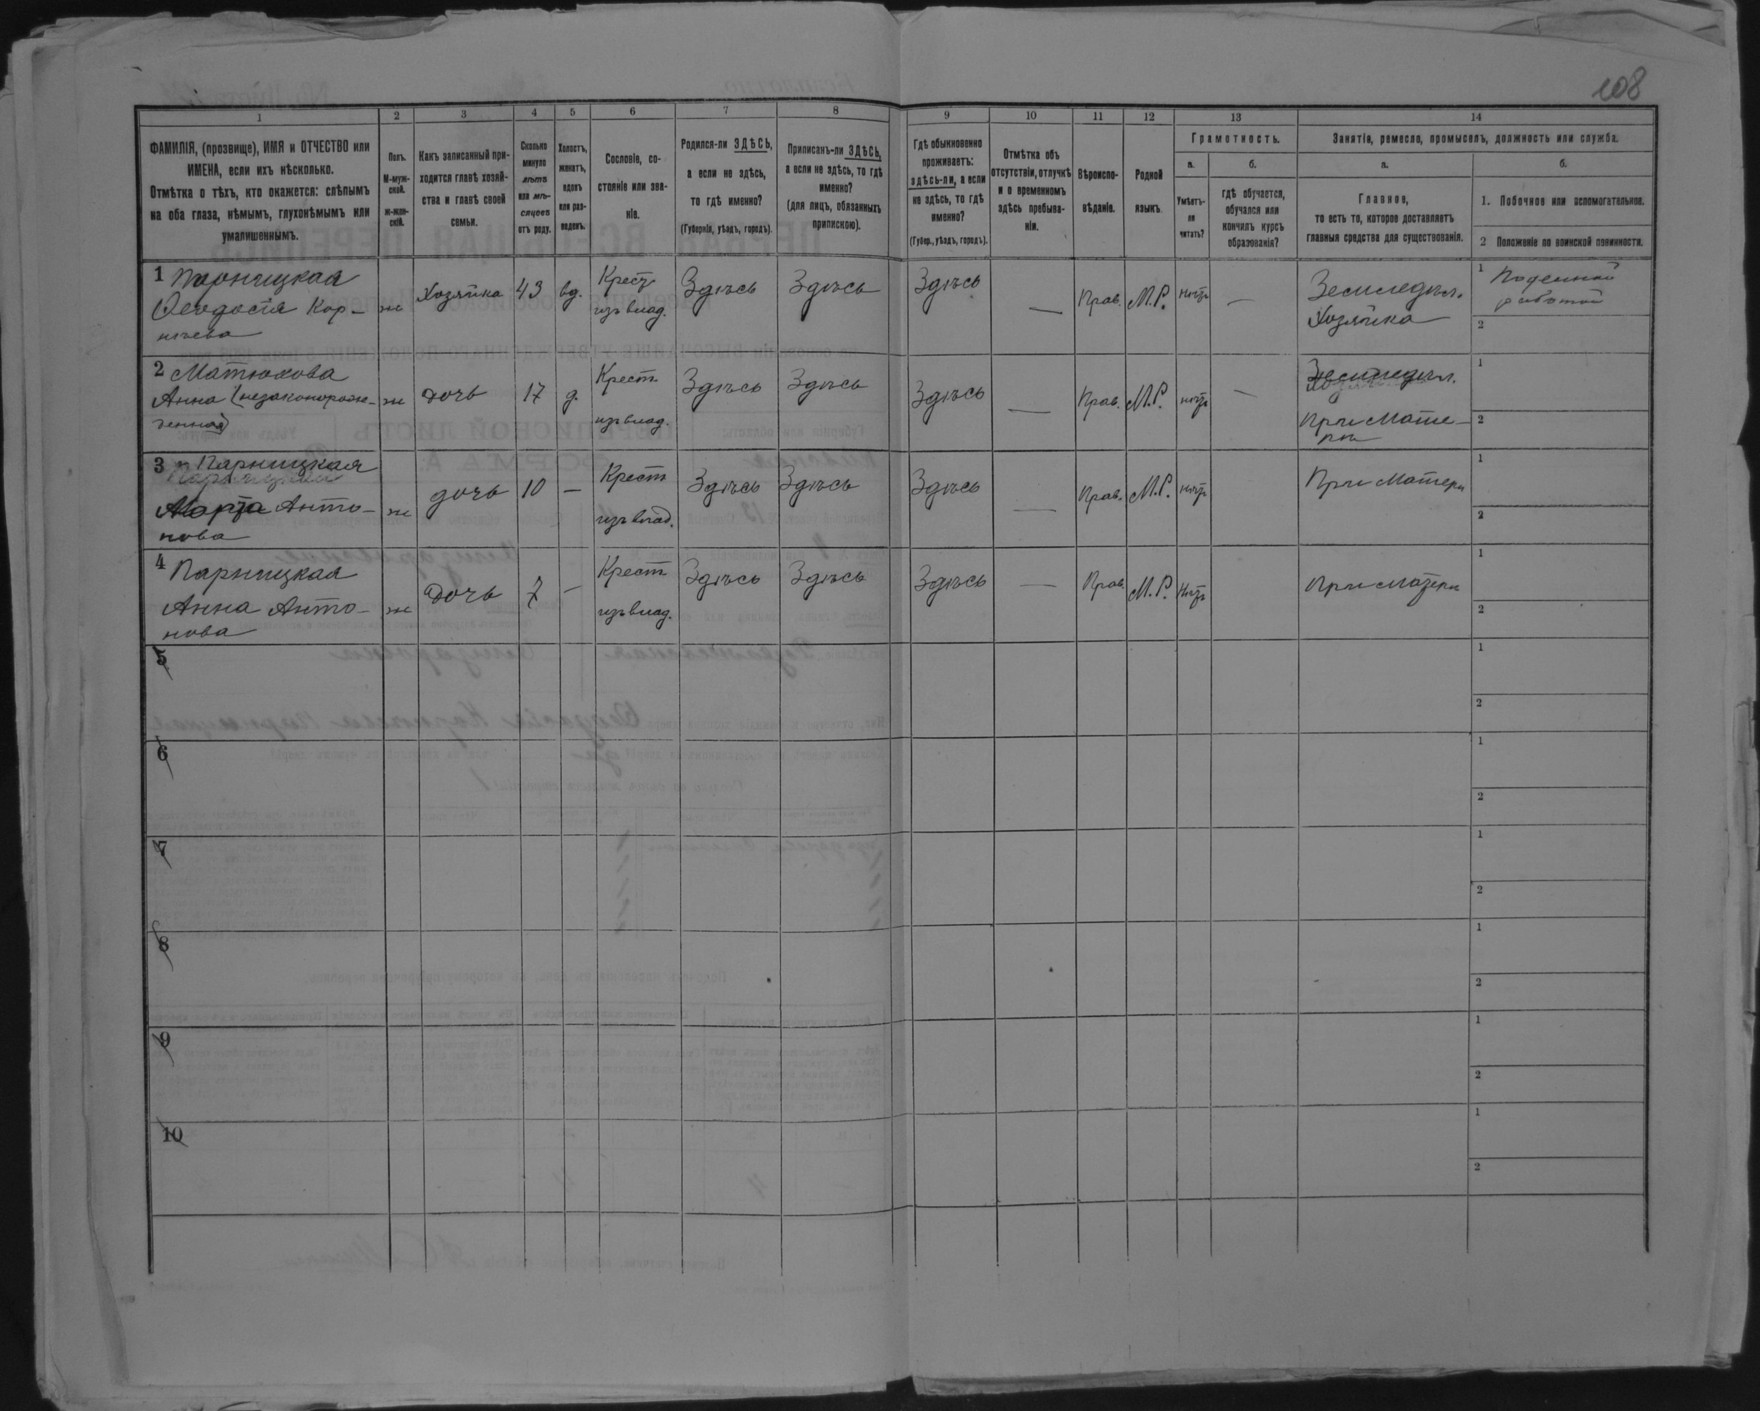 108
1 2 3 4 5 6 7 8 9 10 11 12 13 14
ФАМИЛІЯ, (прозвище), ИМЯ и ОТЧЕСТВО или
ИМЕНА, если ихъ нѣсколько.
Отмѣтка о тѣхъ, кто окажется: слѣпымъ
на оба глаза, нѣмымъ, глухонѣмымъ или
умалишеннымъ.
Полъ.
М-муж-
ской.
ж-жен-
скій.
Какъ записанный при-
ходится главѣ хозяй-
ства и главѣ своей
семьи.
Сколько
минуло
лѣтъ
или мѣ-
сяцевъ
отъ роду.
Холостъ,
женатъ,
вдовъ
или раз-
веденъ.
Сословіе, со-
стояніе или зва-
ніе.
Родился-ли ЗДѢСЬ,
а если не здѣсь,
то гдѣ именно?
(Губернія, уѣздъ, городъ).
Приписанъ-ли ЗДѢСЬ,
а если не здѣсь, то гдѣ
именно?
(для лицъ, обязанныхъ
припискою).
Гдѣ обыкновенно
проживаетъ:
здѣсь-ли, а если
не здѣсь, то гдѣ
именно?
(Губер., уѣздъ, городъ).
Отмѣтка объ
отсутствіи, отлучкѣ
и о временномъ
здѣсь пребыва-
ніи.
Вѣроиспо-
вѣданіе.
Родной
языкъ.
Грамотность.
а. б.
Умѣетъ-
ли
читать?
гдѣ обучается,
обучался или
кончилъ курсъ
образованія?
Занятіе, ремесло, промыселъ, должность или служба.
а. б.
Главное,
то есть то, которое доставляетъ
главныя средства для существованія.
1. Побочное или вспомогательное.
2 Положеніе по воинской повинности.
1 Парницкая
Феодосія Кор-
нѣева
ж Хозяйка 43 вд. Крест. Здѣсь Здѣсь Здѣсь — Прав. М.Р. нѣтъ —
изъ влад.
Земледѣл.
Хозяйка
1 Поденной
работой
2
2 Матюхова
Анна (незаконорож-
денная)
ж дочь 17 д. Крест. Здѣсь Здѣсь Здѣсь — Прав. М.Р. нѣтъ —
изъ влад.
При Мате-
ри
1
2
3 Парницкая
Анто-
нова
ж дочь 10 — Крест. Здѣсь Здѣсь Здѣсь — Прав. М.Р. нѣтъ
изъ влад.
При Матери
1
2
4 Парницкая
Анна Анто-
нова
ж Дочь 7 — Крест. Здѣсь Здѣсь Здѣсь — Прав. М.Р. Нѣтъ
изъ влад.
При Матери
1
2
5 1
2
6 1
2
7 1
2
8 1
2
9 1
2
10 1
2